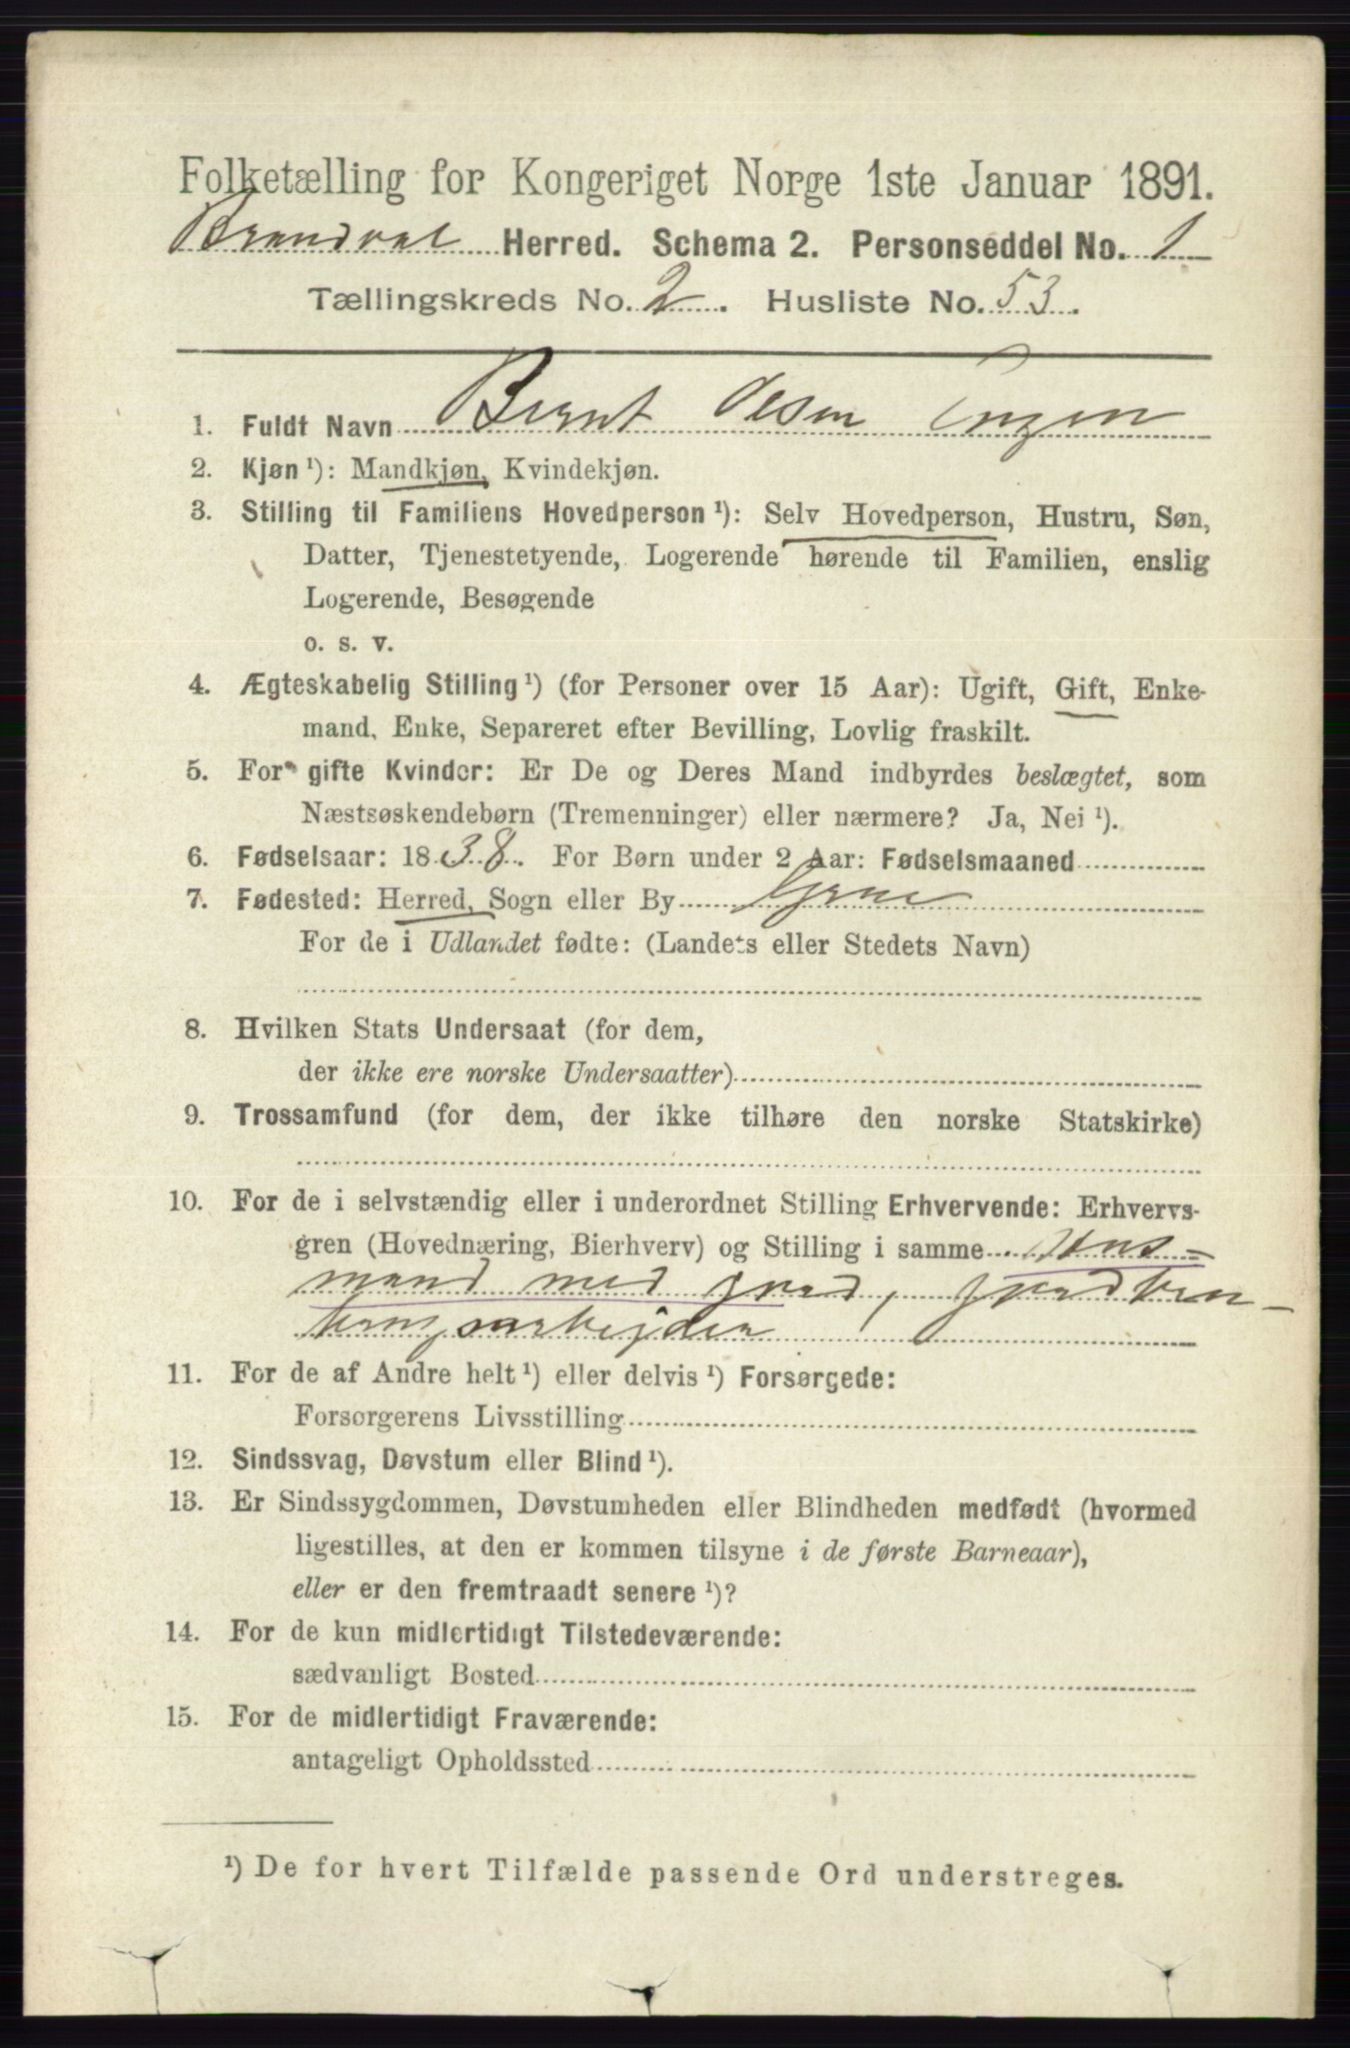 Folketælling for Kongeriget Norge 1ste Januar 1891.
Brandval Herred. Schema 2. Personseddel No. 1
Tællingskreds No. 2. Husliste No. 53.
1. Fuldt Navn Bernt Olsen Engen
2. Kjøn ¹): Mandkjøn, Kvindekjøn.
3. Stilling til Familiens Hovedperson ¹): Selv Hovedperson, Hustru, Søn,
Datter, Tjenestetyende, Logerende hørende til Familien, enslig
Logerende, Besøgende
o. s. v.
4. Ægteskabelig Stilling ¹) (for Personer over 15 Aar): Ugift, Gift, Enke-
mand, Enke, Separeret efter Bevilling, Lovlig fraskilt.
5. For gifte Kvinder: Er De og Deres Mand indbyrdes beslægtet, som
Næstsøskendebørn (Tremenninger) eller nærmere? Ja, Nei ¹).
6. Fødselsaar: 1838. For Børn under 2 Aar: Fødselsmaaned
7. Fødested: Herred, Sogn eller By Grue
For de i Udlandet fødte: (Landets eller Stedets Navn)
8. Hvilken Stats Undersaat (for dem,
der ikke ere norske Undersaatter)
9. Trossamfund (for dem, der ikke tilhøre den norske Statskirke)
10. For de i selvstændig eller i underordnet Stilling Erhvervende: Erhvervs-
gren (Hovednæring, Bierhverv) og Stilling i samme Hus-
mand med jord, jordbru-
arbejder
11. For de af Andre helt ¹) eller delvis ¹) Forsørgede:
Forsørgerens Livsstilling
12. Sindssvag, Døvstum eller Blind ¹).
13. Er Sindssygdommen, Døvstumheden eller Blindheden medfødt (hvormed
ligestilles, at den er kommen tilsyne i de første Barneaar),
eller er den fremtraadt senere ¹)?
14. For de kun midlertidigt Tilstedeværende:
sædvanligt Bosted
15. For de midlertidigt Fraværende:
antageligt Opholdssted
¹) De for hvert Tilfælde passende Ord understreges.